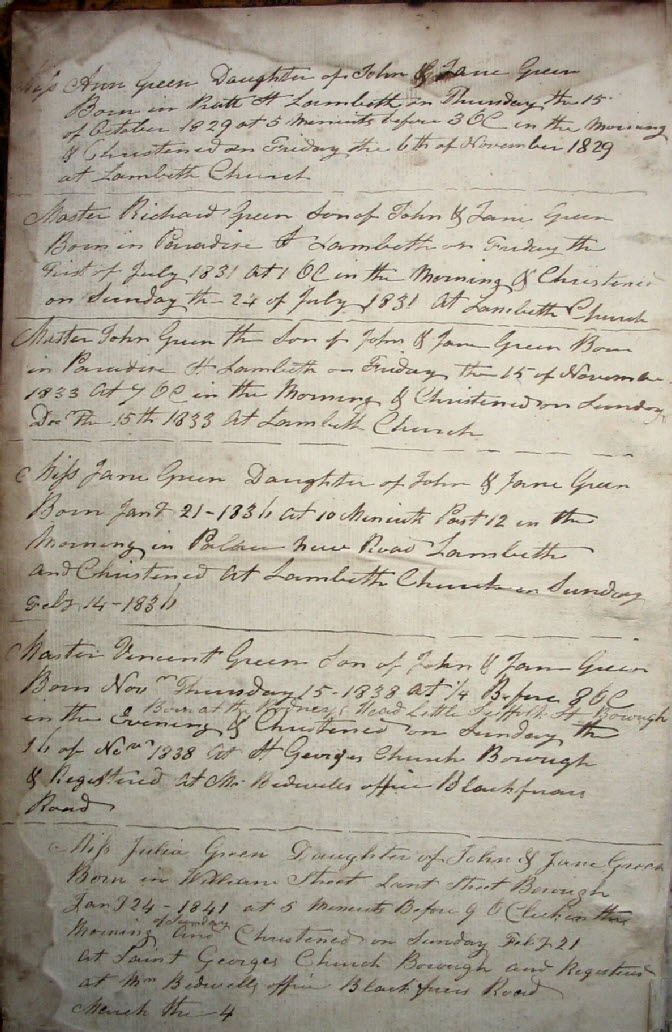 Miss Ann Green Daughter of John & Jane Green
Born in St Lambeth on Thursday the 15
of October 1829 at 5 Meniets before 3 OC in the Morning
& Christened on Friday the 6th of November 1829
at Lambeth Church
Master Richard Green Son of John & Jane Green
Born in Paradise St Lambeth on Friday the
First of July 1831 At 1 OC in the Morning & Christened
on Sunday the 24 of July 1831 At Lambeth Church
Master John Green the Son of John & Jane Green Born
in Paradise St Lambeth on Friday the 15 of November
1833 At 7 OC in the Morning & Christened on Sunday
Decr The 15th 1833 At Lambeth Church
Miss Jane Green Daughter of John & Jane Green
Born Jany 21 - 1836 at 10 Past 12 in the
Morning in New Road Lambeth
and Christened At Lambeth Church on Sunday
Feby 14 - 1836
Master Vincent Green Son of John & Jane Green
Born Novm Thursday 15 - 1838 at 1/4 Before 8 OC
Born at the Head Little Suffolk St Borough
in the Evening & Christened on Sunday the
16 of 1838 At St Georges Church Borough
& Registered at Mr office Blackfriars
Road
Miss Julia Green Daughter of John & Jane Green
Born in William Street Lant Street Borough
Jany 24 - 1841 at 5 Meniets Before 9 O Clock in the
of Sunday
Morning And Christened on Sunday Feby 21
at Saint Georges Church Borough and Registered
at Mr Bedwells office Blackfriars Road
March the 4